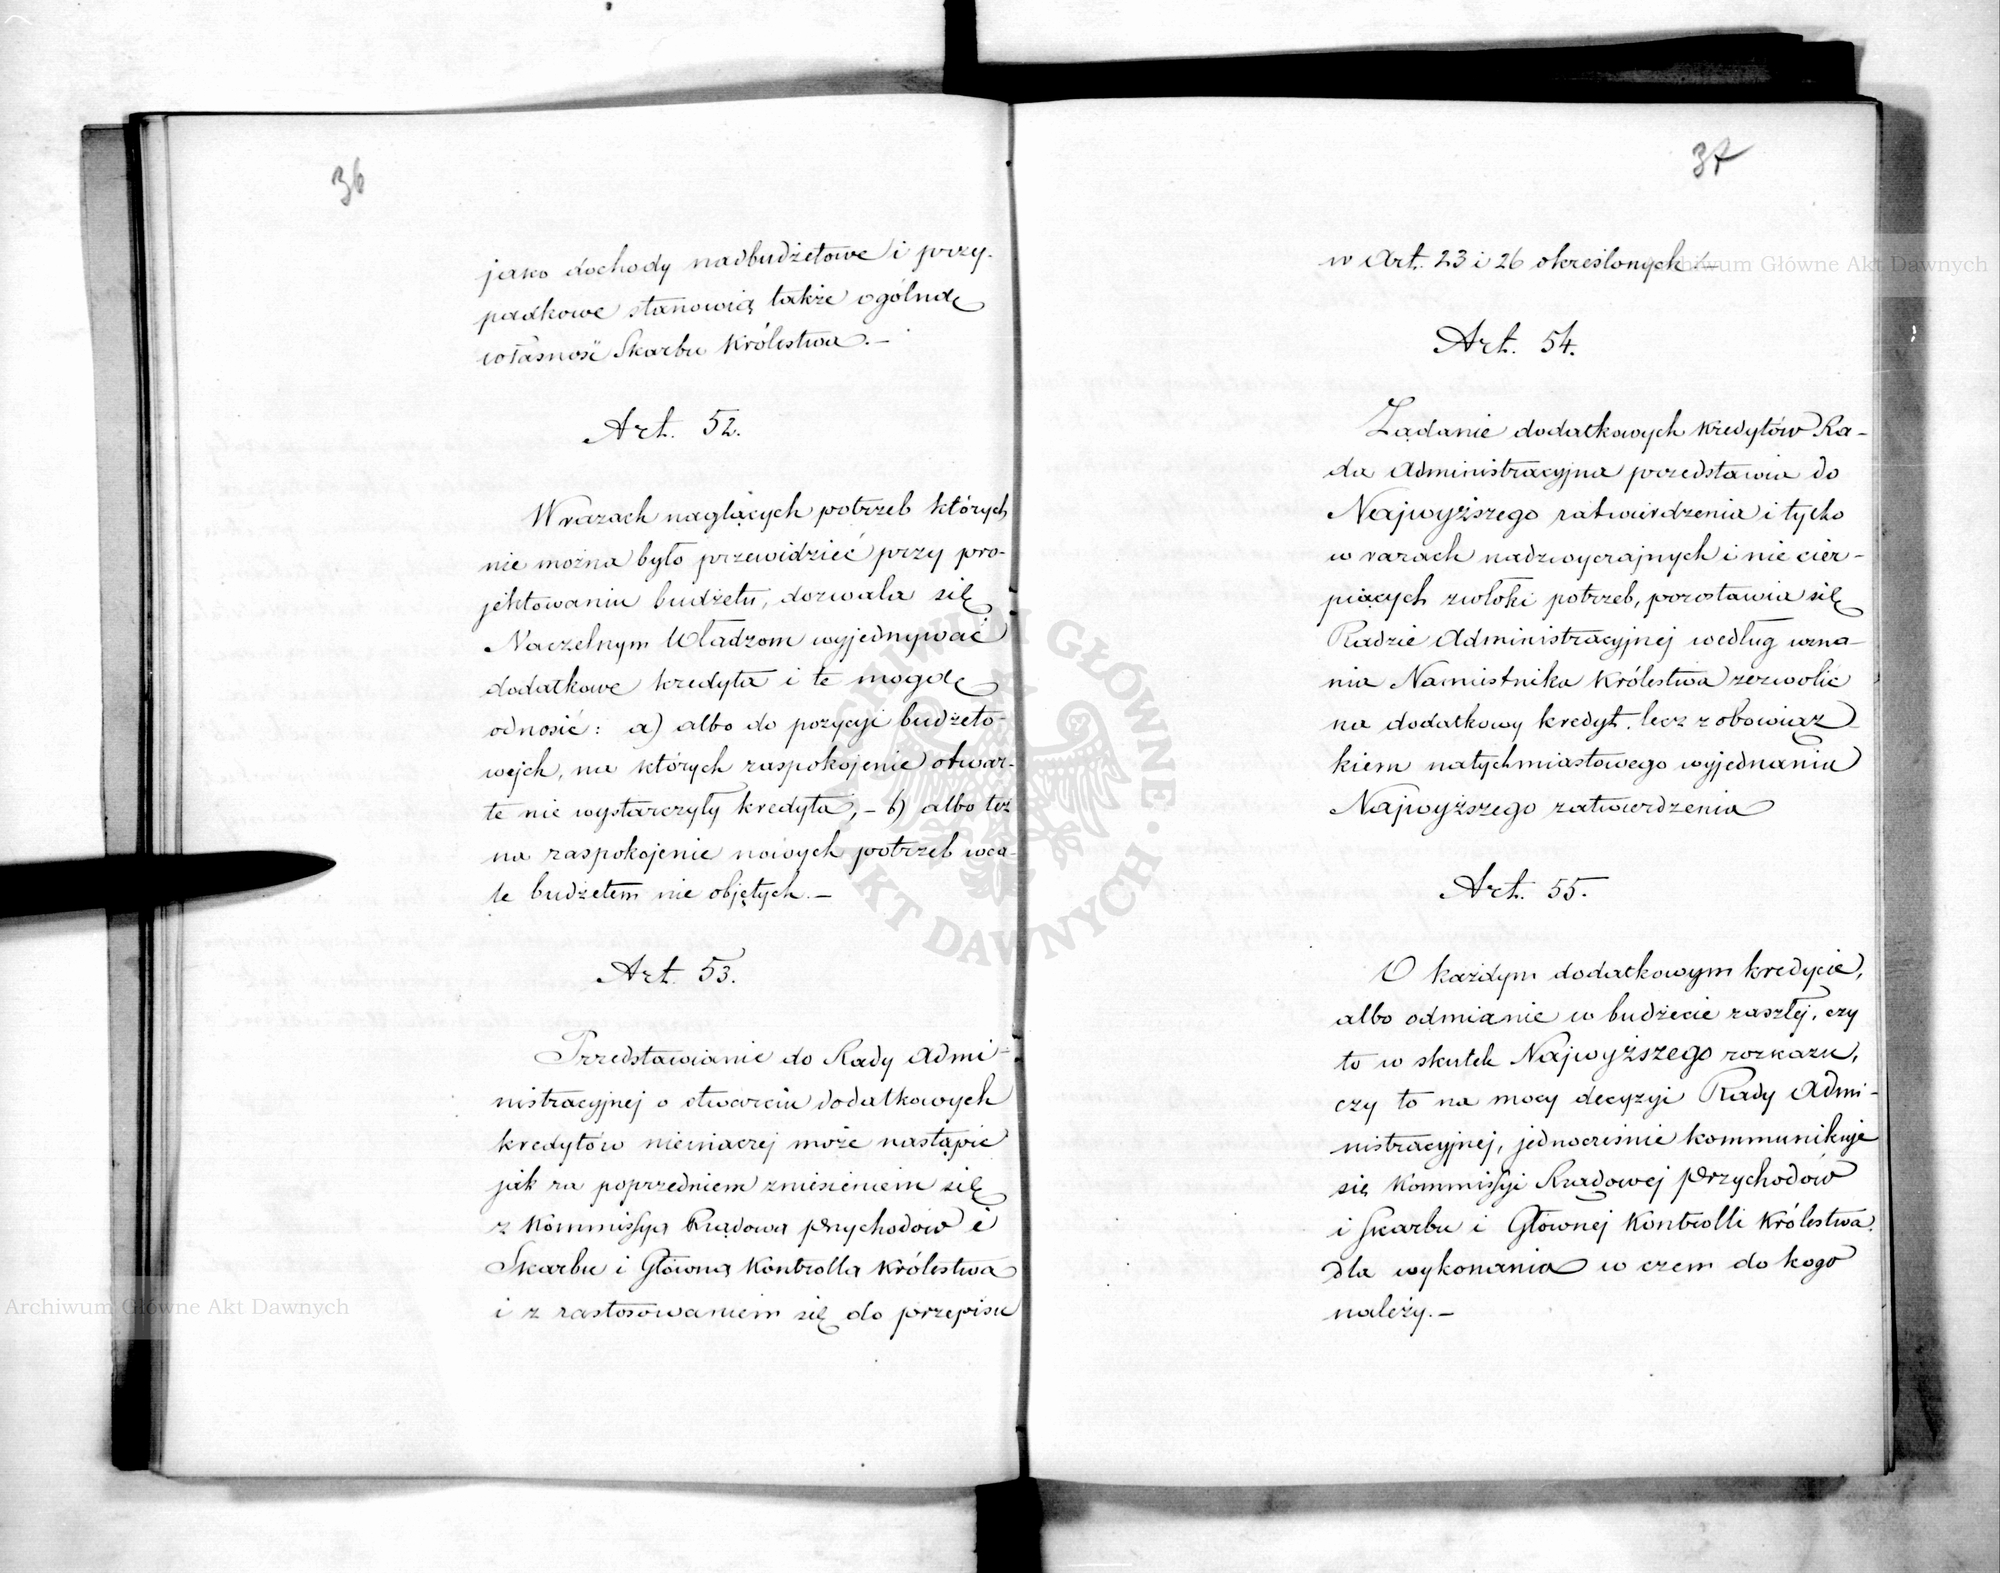 36
jako dochody nadbudżetowe i przy-
padkowe stanowią także ogólną
własność Skarbu Królestwa.–
Art. 52.
W razach naglących potrzeb których
nie można było przewidzieć przy pro-
jektowaniu budżetu, dozwala się
Naczelnym Władzom wyjednywać
dodatkowe kredyta i te mogą
odnosić: a) albo do pozycji budżeto-
wych, na których zaspokojenie otwar-
te nie wystarczyły kredyta,– b) albo też
na zaspokojenie nowych potrzeb wca-
le budżetem nie objętych.–
Art. 53.
Przedstawianie do Rady Admi-
nistracyjnej o otwarciu dodatkowych
kredytów nieinaczej może nastąpić
jak za poprzedniem zniesieniem się
z Kommissyą Rządową Przychodów i
Skarbu i Główną Kontrollą Królestwa
i z zastosowaniem się do przepisu
37
w Art. 23 i 26 określonych.–
Art. 54.
Żądanie dodatkowych kredytów Ra-
da Administracyjna przedstawia do
Najwyższego zatwierdzenia i tylko
w razach nadzwyczajnych i nie cier-
piących zwłoki potrzeb, pozostawia się
Radzie Administracyjnej według uzna-
nia Namiestnika Królestwa zezwolić
na dodatkowy kredyt, lecz z obowiąz-
kiem natychmiastowego wyjednania
Najwyższego zatwierdzenia
Art. 55.
O każdym dodatkowym kredycie,
albo odmianie w budżecie zaszłej, czy
to w skutek Najwyższego rozkazu,
czy to na mocy decyzyi Rady Admi-
nistracyjnej, jednocześnie kommunikuje
się Kommissyi Rządowej Przychodów
i Skarbu i Głównej Kontrolli Królestwa
dla wykonania w czem do kogo
należy.–
ARCHIWUM GŁÓWNE AKT DAWNYCH
Archiwum Główne Akt Dawnych
Archiwum Główne Akt Dawnych